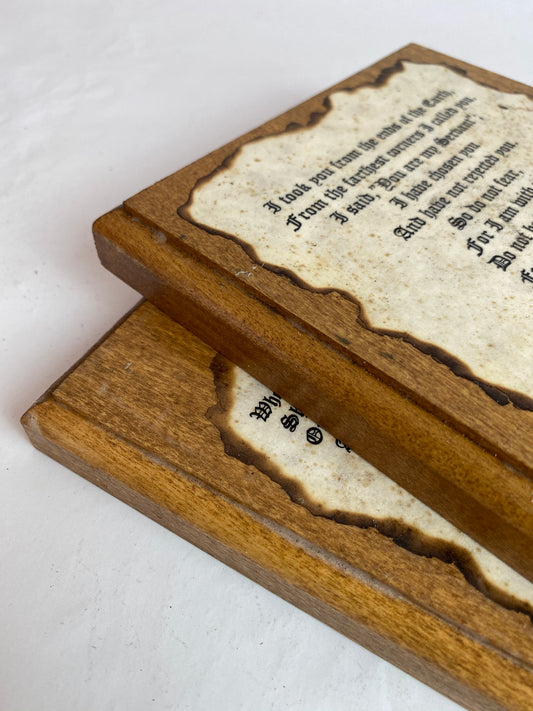 I took you from the ends of the Earth,
From the farthest corners I called you.
I said, "You are my Servant",
I have chosen you
And have not rejected you.
So do not fear,
For I am with
Do not
Wh